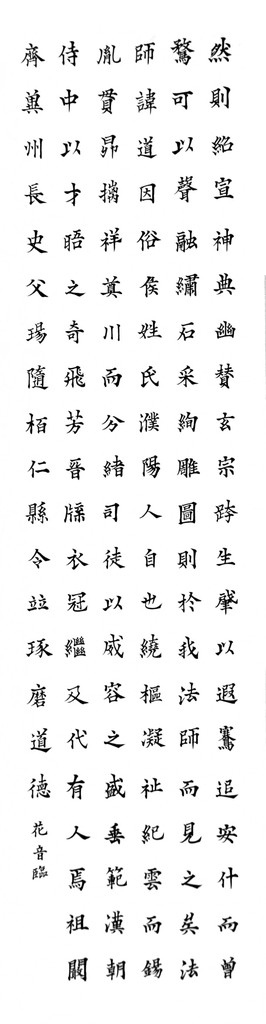 然則紹宣神典幽贊玄宗跨生肇以遐騫追安什而曾
騖可以聲融繡石采絢雕圖則於我法師而見之矣法
師諱道因俗侯姓氏濮陽人自也繞樞凝祉紀雲而錫
胤貫昴摛祥奠川而分緒司徒以威容之盛垂範漢朝
侍中以才晤之奇飛芳晉牒衣冠繼及代有人焉祖闞
齊冀州長史父瑒隨栢仁縣令竝琢磨道德
花音臨